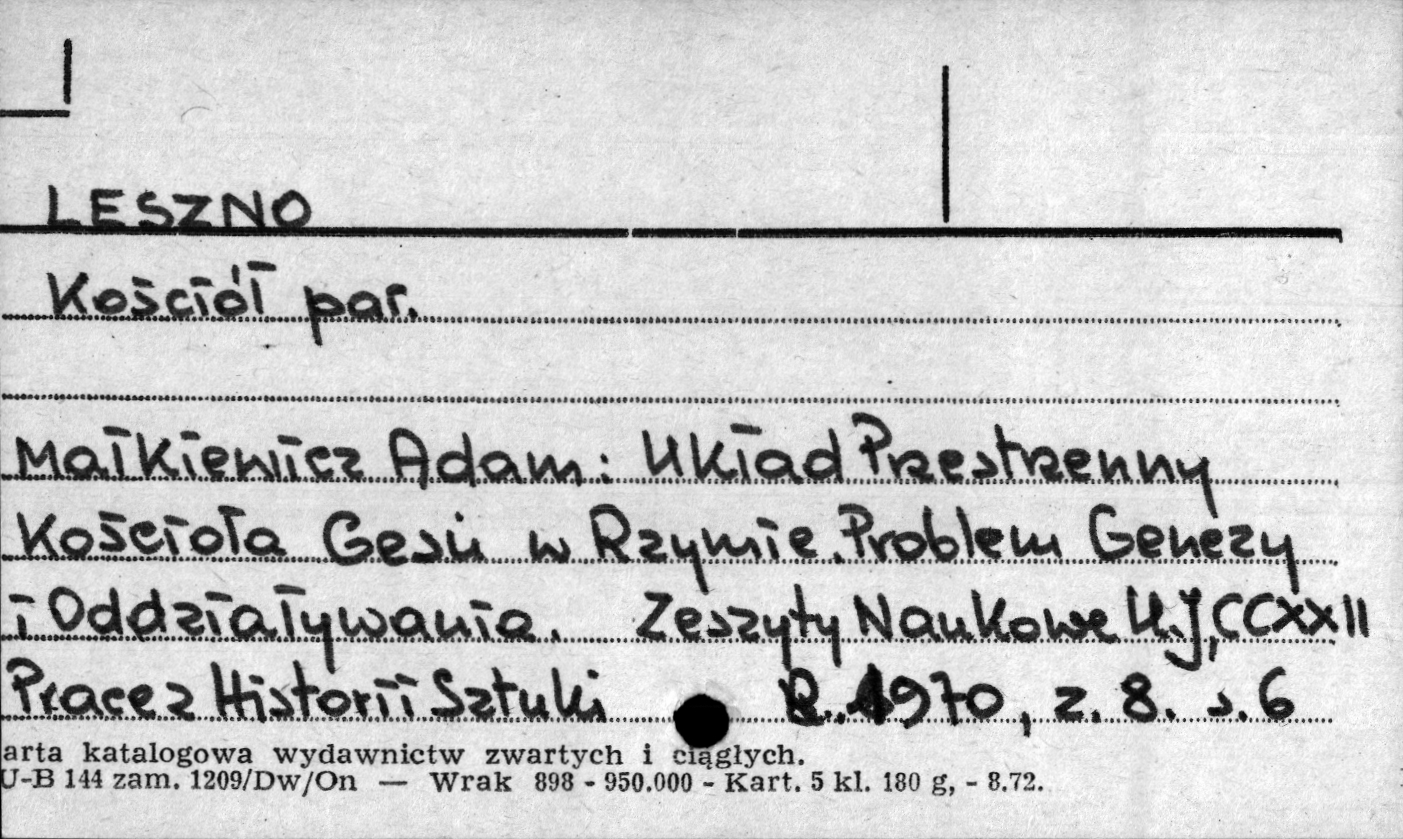 LESZNO
Kościół par.
Małkiewicz Adam: Układ Przestrzenny
Kościoła Gesù w Rzymie. Problem Genezy
i Oddziaływania. Zeszyty Naukowe UJ, CCXXII
Prace z Historii Sztuki R. 1970, z. 8. s. 6
arta katalogowa wydawnictw zwartych i ciągłych.
U-B 144 zam. 1209/Dw/On — Wrak 898 - 950.000 - Kart. 5 kl. 180 g, - 8.72.